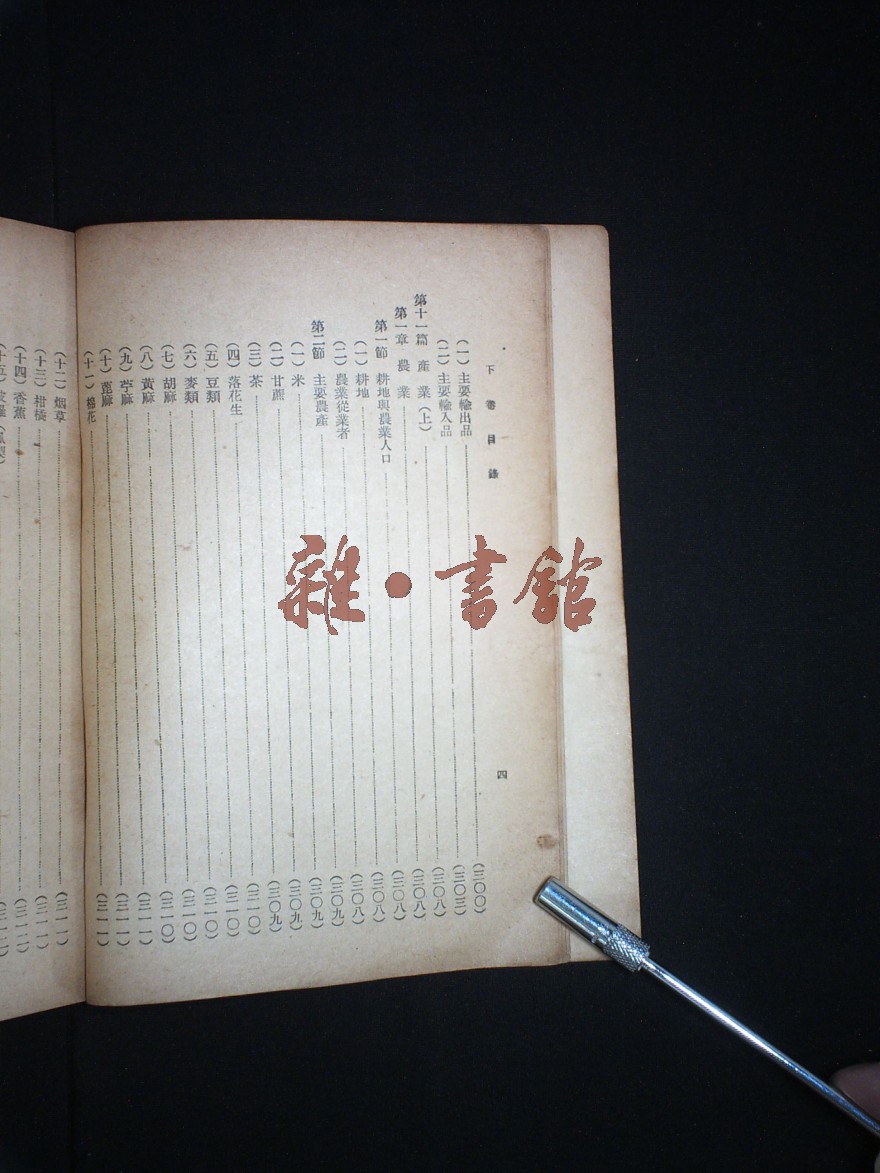 下卷目錄
四
(一)主要輸出品(三〇〇)
(二)主要輸入品(三〇三)
第十一篇 產業(上)(三〇八)
第一章 農業(三〇八)
第一節 耕地與農業人口(三〇八)
(一)耕地(三〇八)
(二)農業從業者(三〇九)
第二節 主要農產(三〇九)
(一)米(三〇九)
(二)甘蔗(三〇九)
(三)茶(三一〇)
(四)落花生(三一〇)
(五)豆類(三一〇)
(六)麥類(三一〇)
(七)胡麻(三一〇)
(八)黃麻(三一一)
(九)苧麻(三一一)
(十)蓖麻(三一一)
(十一)棉花
(十二)烟草(三一一)
(十三)柑橘(三一一)
(十四)香蕉(三一二)
雜·書館